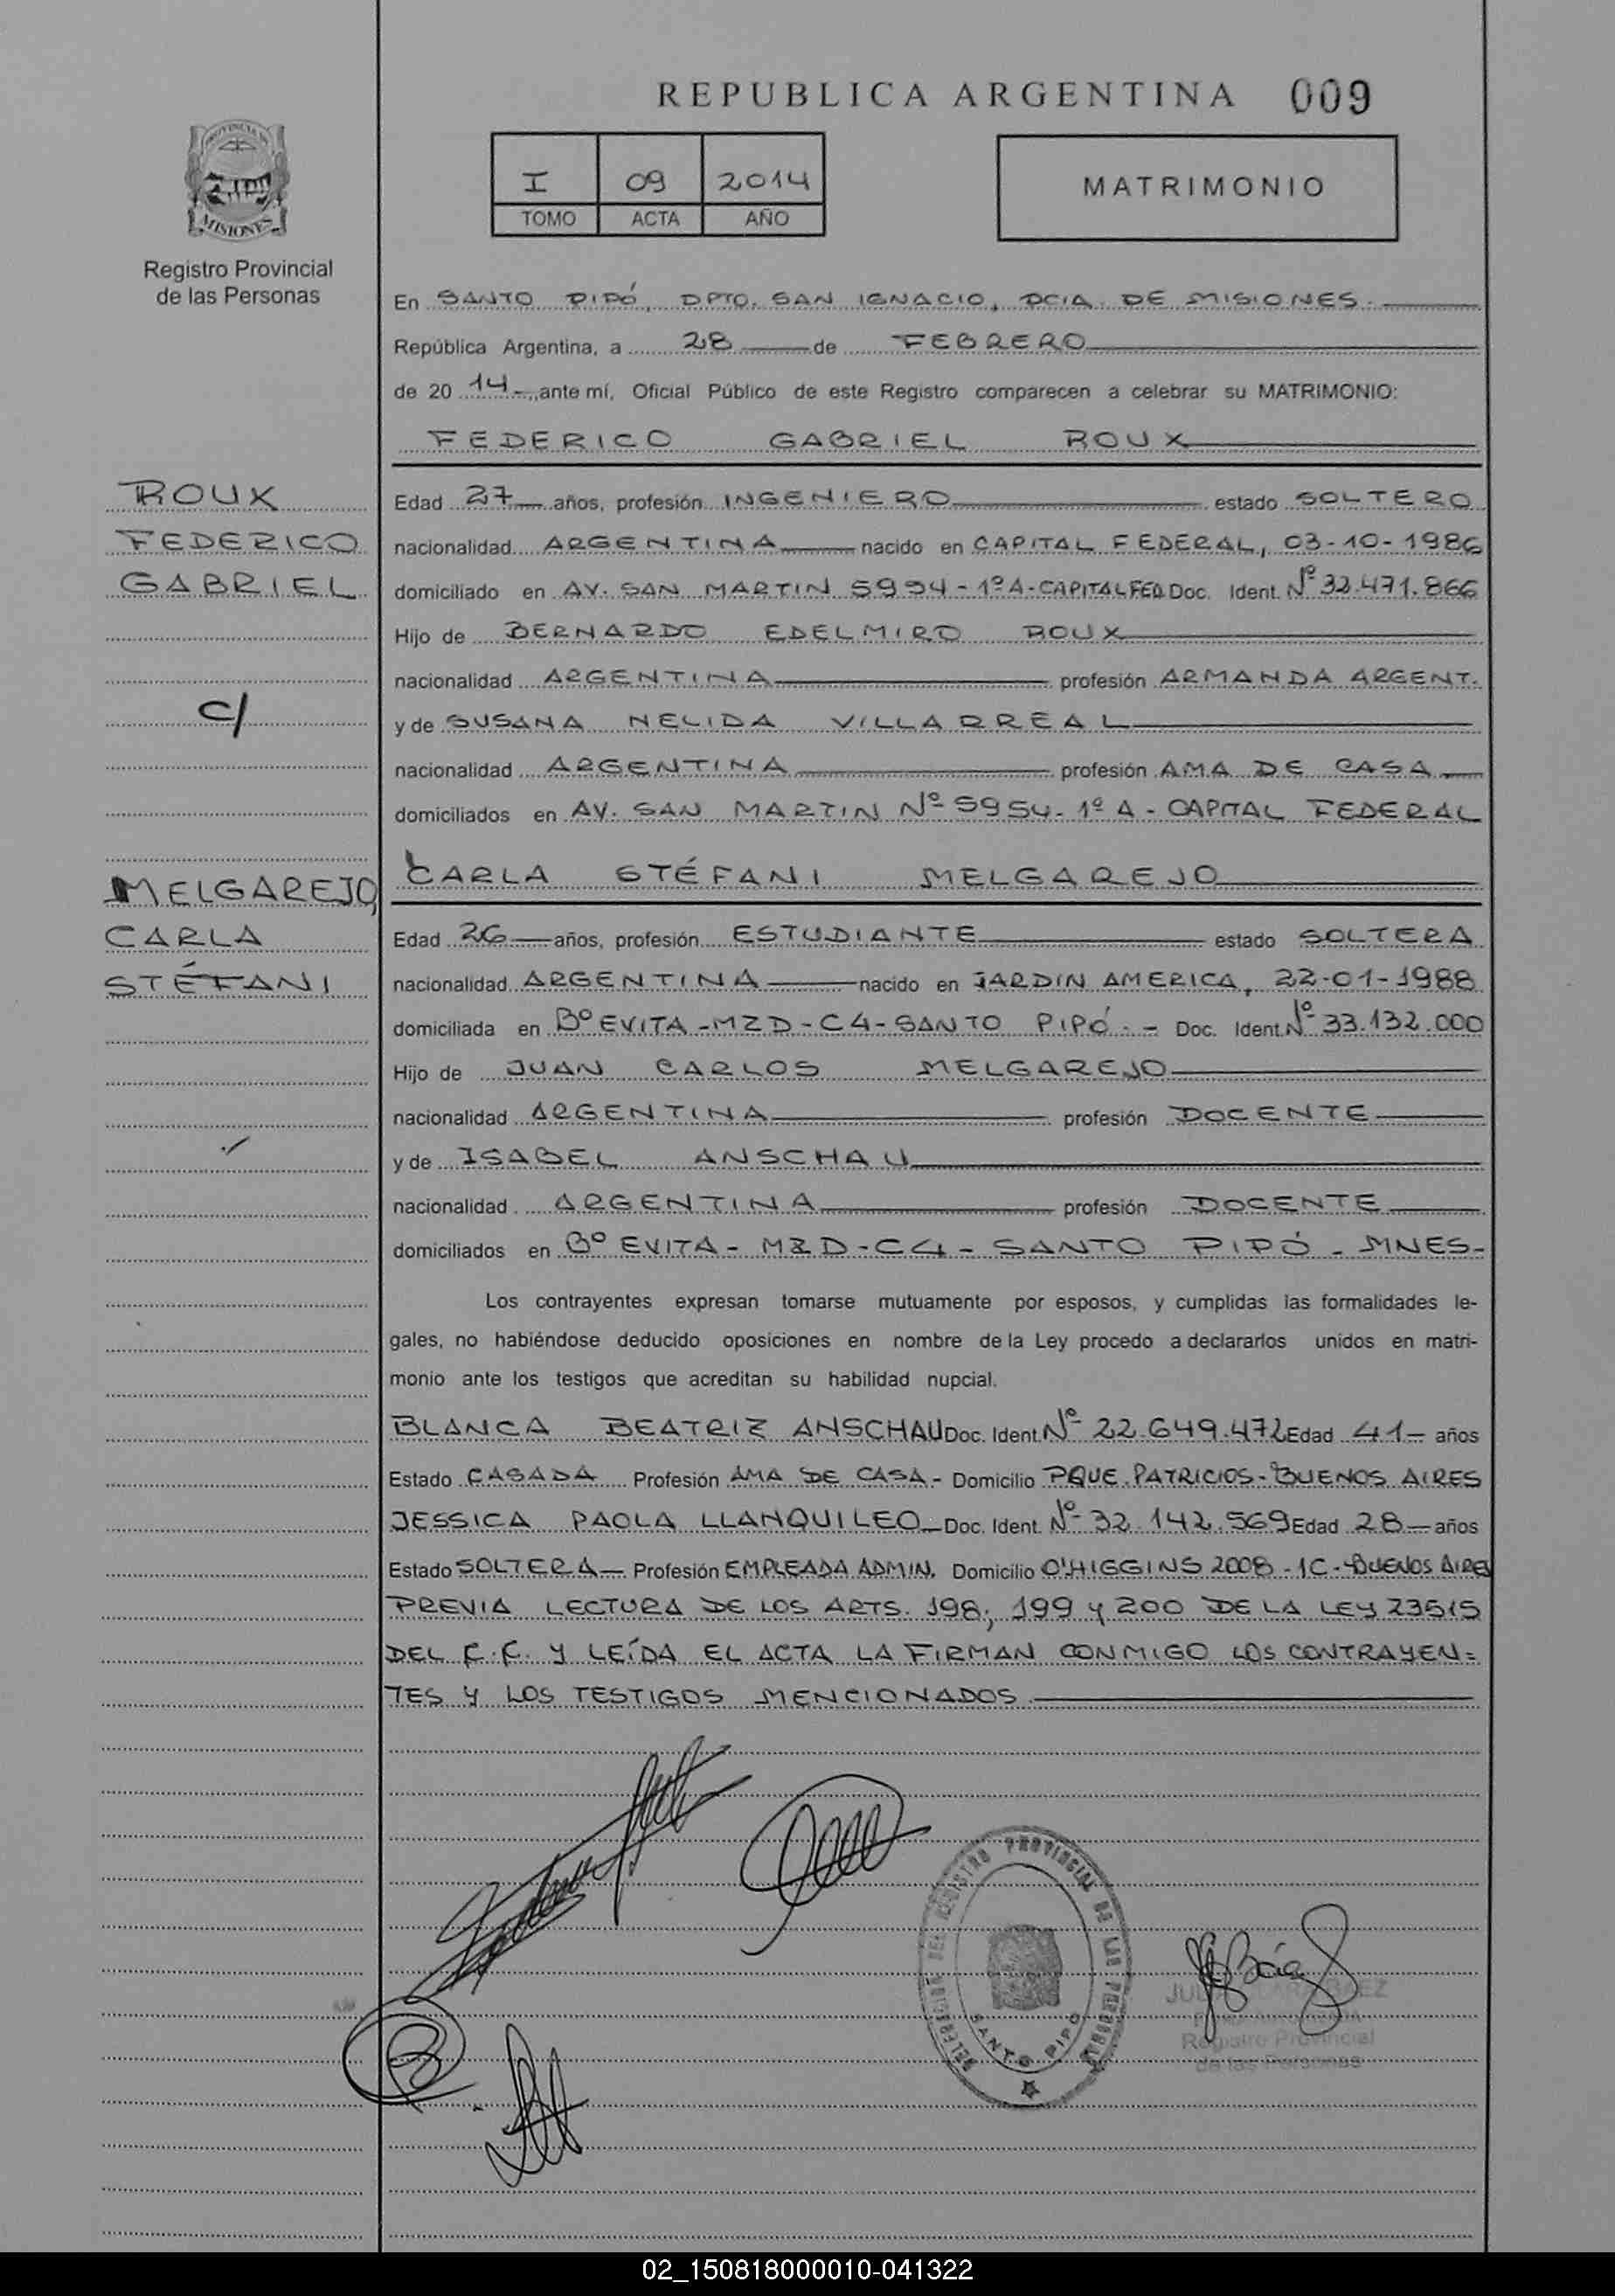 REPUBLICA ARGENTINA 009
I 09 2014
TOMO ACTA AÑO
MATRIMONIO
PROVINCIA DE
MISIONES
Registro Provincial
de las Personas
En SANTO PIPÓ, DPTO. SAN IGNACIO, PCIA. DE MISIONES.
República Argentina, a 28 de FEBRERO
de 20 14 ante mí, Oficial Público de este Registro comparecen a celebrar su MATRIMONIO:
FEDERICO GABRIEL ROUX
ROUX
FEDERICO
GABRIEL
C/
MELGAREJO,
CARLA
STÉFANI
Edad 27 años, profesión INGENIERO estado SOLTERO
nacionalidad ARGENTINA nacido en CAPITAL FEDERAL, 03-10-1986
domiciliado en AV. SAN MARTIN 5954-1º A-CAPITAL FED Doc. Ident. Nº 32.471.866
Hijo de BERNARDO EDELMIRO ROUX
nacionalidad ARGENTINA profesión ARMANDA ARGENT.
y de SUSANA NELIDA VILLARREAL
nacionalidad ARGENTINA profesión AMA DE CASA
domiciliados en AV. SAN MARTIN Nº 5954-1º A - CAPITAL FEDERAL
CARLA STÉFANI MELGAREJO
Edad 26 años, profesión ESTUDIANTE estado SOLTERA
nacionalidad ARGENTINA nacido en JARDIN AMERICA, 22-01-1988
domiciliada en Bº EVITA-MZD-C4-SANTO PIPÓ.- Doc. Ident. Nº 33.132.000
Hijo de JUAN CARLOS MELGAREJO
nacionalidad ARGENTINA profesión DOCENTE
y de ISABEL ANSCHAU
nacionalidad ARGENTINA profesión DOCENTE
domiciliados en Bº EVITA - MZD-C4 - SANTO PIPÓ - MNES-
Los contrayentes expresan tomarse mutuamente por esposos, y cumplidas las formalidades le-
gales, no habiéndose deducido oposiciones en nombre de la Ley procedo a declararlos unidos en matri-
monio ante los testigos que acreditan su habilidad nupcial.
BLANCA BEATRIZ ANSCHAU Doc. Ident. Nº 22.649.472 Edad 41- años
Estado CASADA Profesión AMA DE CASA.- Domicilio PQUE. PATRICIOS-BUENOS AIRES
JESSICA PAOLA LLANQUILEO Doc. Ident. Nº 32.142.569 Edad 28 años
Estado SOLTERA Profesión EMPLEADA ADMIN. Domicilio O'HIGGINS 2008-1C-BUENOS AIRES
PREVIA LECTURA DE LOS ARTS. 198; 199 y 200 DE LA LEY 23515
DEL C.C. Y LEÍDA EL ACTA LA FIRMAN CONMIGO LOS CONTRAYEN=
TES Y LOS TESTIGOS MENCIONADOS.
REGISTRO PROVINCIAL DE LAS PERSONAS
SANTO PIPO
BAEZ
Registro Provincial
de las Personas
02_150818000010-041322